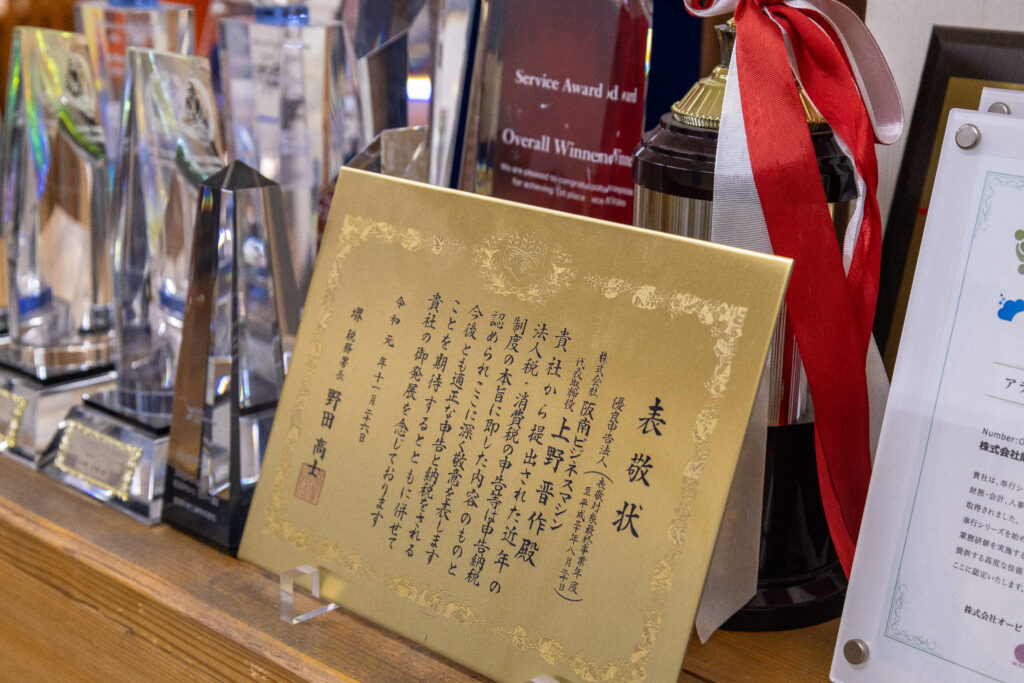 表敬状
優良申告法人（表敬対象最終事業年度
至平成三十年八月二十日）
株式会社 阪南ビジネスマシン
代表取締役 上野晋作殿
貴社から提出された近年の
法人税・消費税の申告等は申告納税
制度の本旨に即した内容のものと
認められここに深く敬意を表します
今後とも適正な申告と納税をされる
ことを期待するとともに併せて
貴社の御発展を念じております
令和元年十一月二十六日
堺税務署長 野田高士
Service Award
Overall Winner
We are pleased to congratulate
for achieving 1st place
Number:
株式会社
貴社は、奉行シ
財務・会計、人事
取得されました。
奉行シリーズを始め
業務研修を実施す
提供する高度な技術
ここに認定いたします。
株式会社オービ